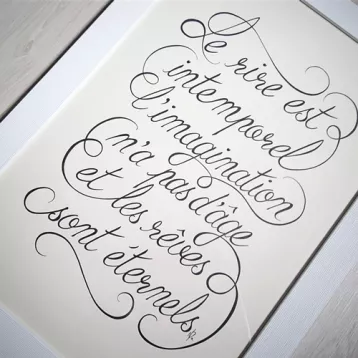 Le rire est
intemporel
l'imagination
n'a pas d'âge
et les rêves
sont éternels